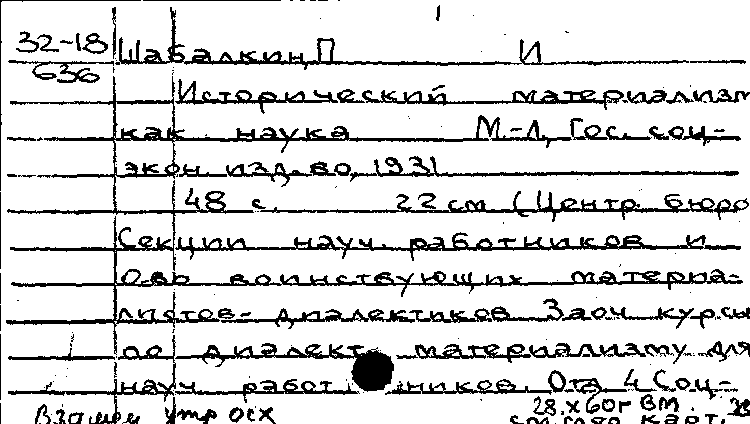 32-18 Шабалкин, П И
636
Исторический материализм
как наука М.-Л, Гос. соц-
экон. изд-во, 1931.
48 с. 22 см (Центр. бюро
Секции науч. работников и
О-во воинствующих материа-
листов-диалектиков Заоч курсы
по диалект. материализму для
науч. работников. Отд 4 Соц-
Взамен утр осх 28.X60г ВМ.